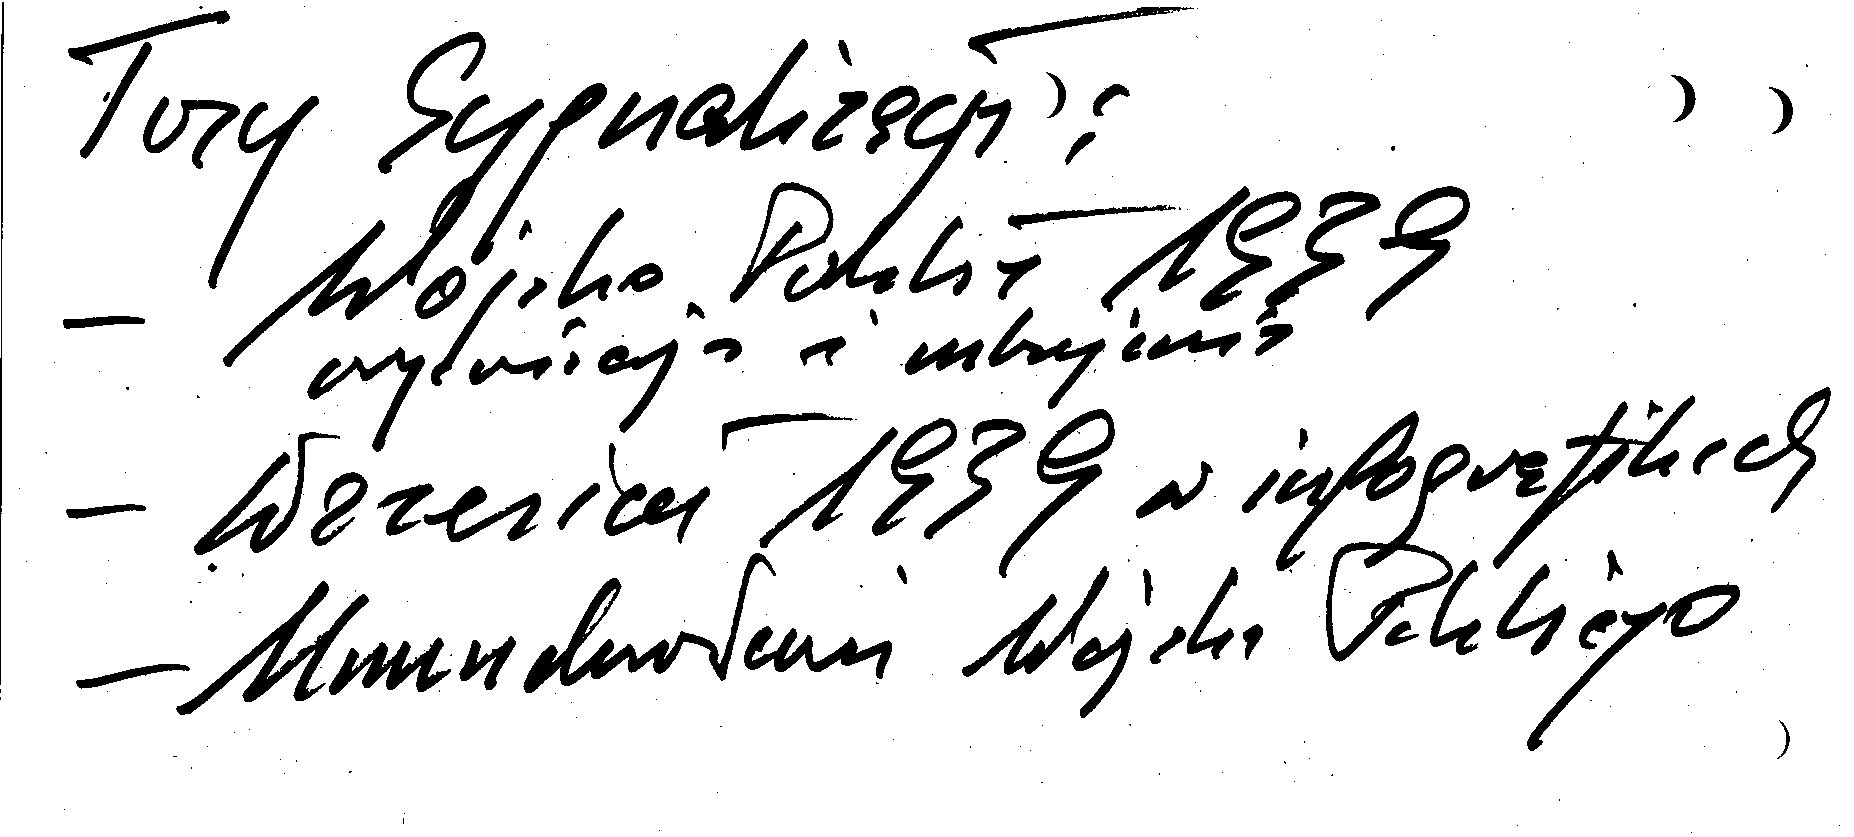 Tory Sygnalizacji:
- Wojsko Polskie 1939
i
- Wrzesień 1939 w infografikach
- Umundurowanie Wojska Polskiego